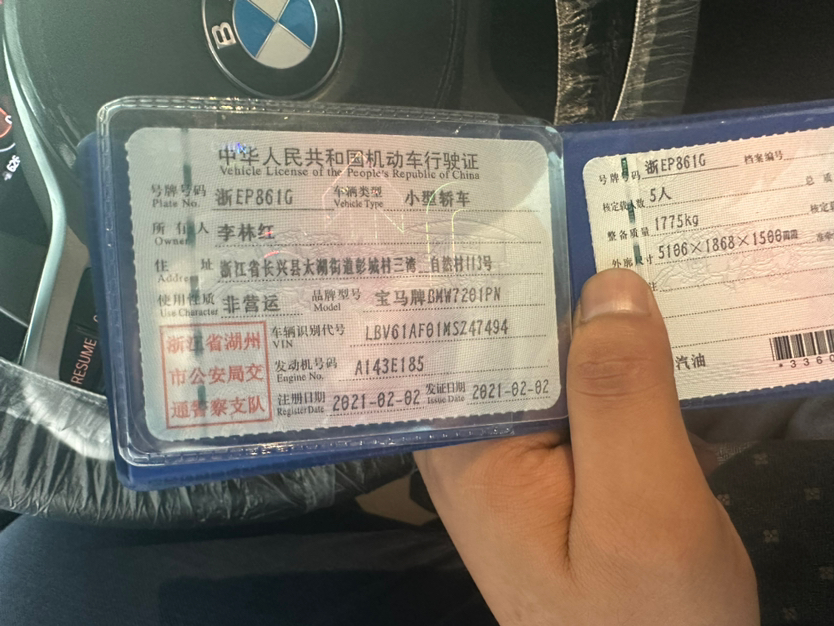 中华人民共和国机动车行驶证
Vehicle License of the People's Republic of China
号牌号码 浙EP861G 车辆类型 小型轿车
Plate No. Vehicle Type
所有人 李林红
Owner
住址 浙江省长兴县太湖街道彭城村三湾_自然村113号
Address
使用性质 非营运 品牌型号 宝马牌BMW7201PN
Use Character Model
浙江省湖州
市公安局交
通警察支队
车辆识别代号 LBV61AF01MSZ47494
VIN
发动机号码 A143E185
Engine No.
注册日期 2021-02-02 发证日期 2021-02-02
Register Date Issue Date
号牌号码 浙EP861G 档案编号
核定载人数 5人 总质
整备质量 1775kg 核定载
外廓尺寸 5106×1868×1500
汽油
RESUME
B